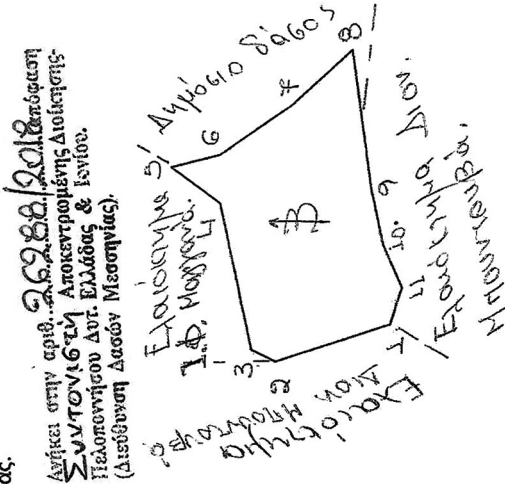 ας.
Ανήκει στην αριθ. 26288/2018 απόφαση
Συντονιστή Αποκεντρωμένης Διοίκησης
Πελοποννήσου Δυτ. Ελλάδας & Ιονίου.
(Διεύθυνση Δασών Μεσσηνίας).
Ελαιόκτημα
Ι.Φ. Μαγγανά.
Δημόσιο δάσος
Ελαιόκτημα
Διον.
Μπουντουβά.
Ελαιόκτημα Διον.
Μπουντουβά.
Β
1
2
3
4
5
6
7
8
9
10
11